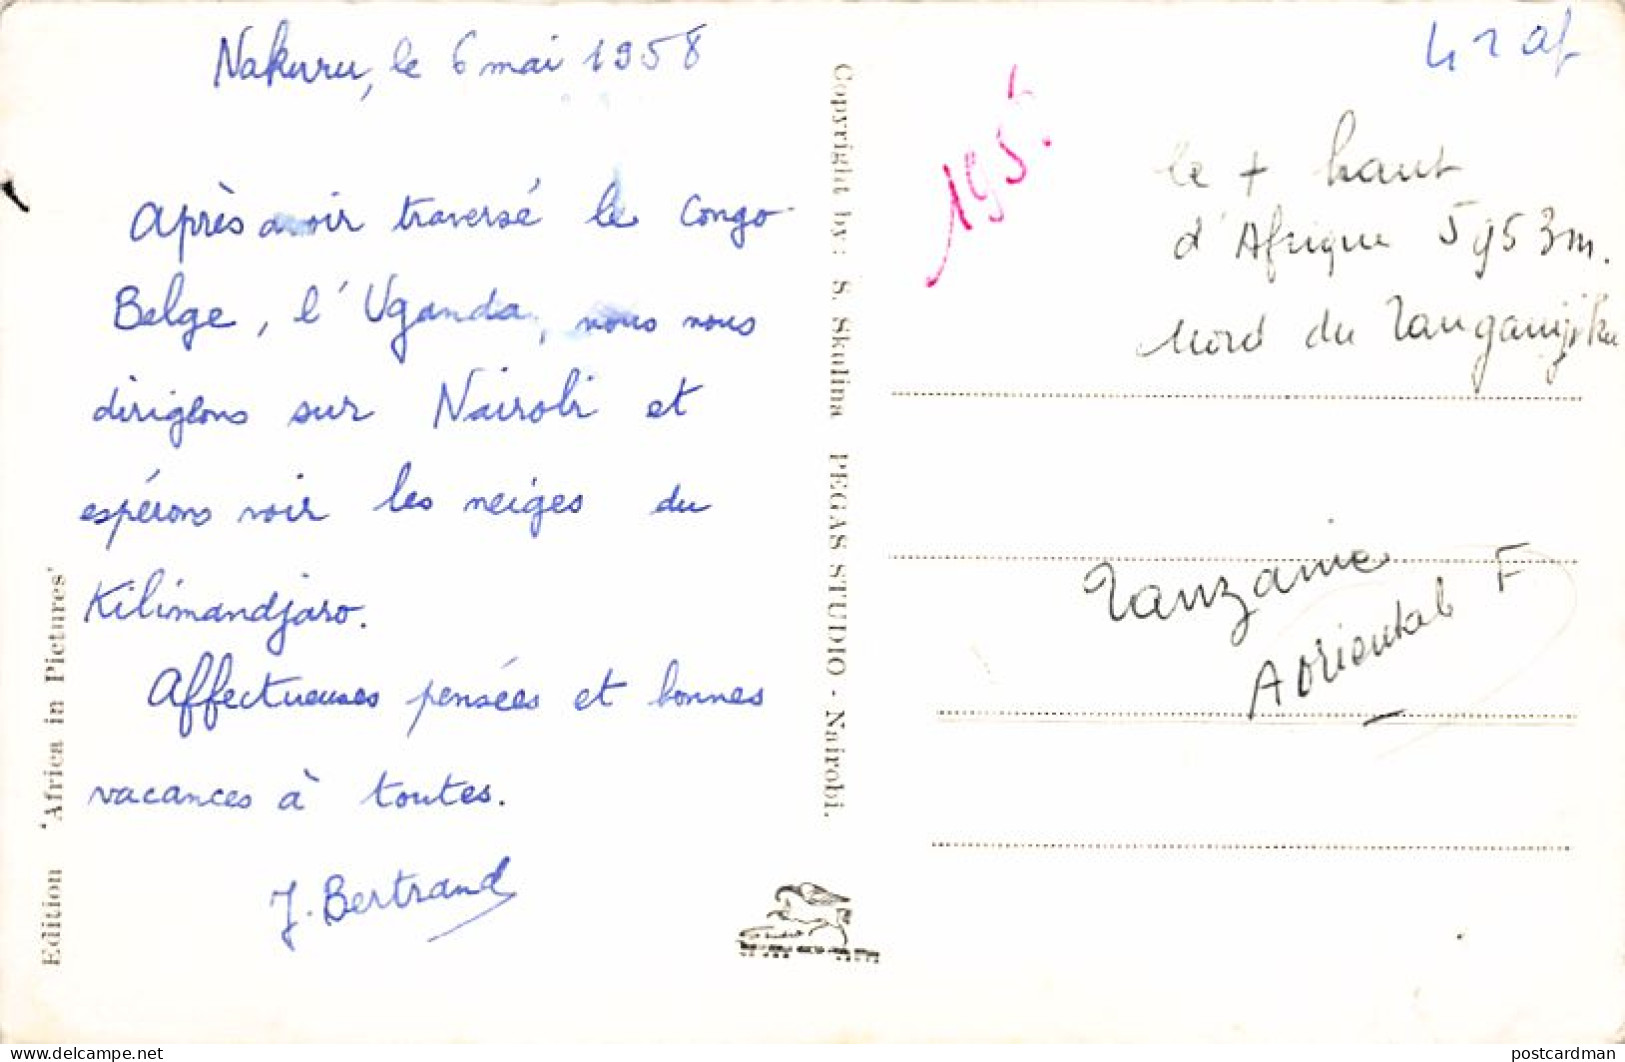 Nakuru, le 6 mai 1958
Après avoir traversé le Congo
Belge, l'Uganda, nous nous
dirigeons sur Nairobi et
espérons voir les neiges du
Kilimandjaro.
Affectueuses pensées et bonnes
vacances à toutes.
J. Bertrand
Edition 'Africa in Pictures'
Copyright by: S. Skulina PEGAS STUDIO - Nairobi.
195
le + haut
d'Afrique 5953m.
Nord du Tanganyika
Tanzanie
A Oriental F
postcardman